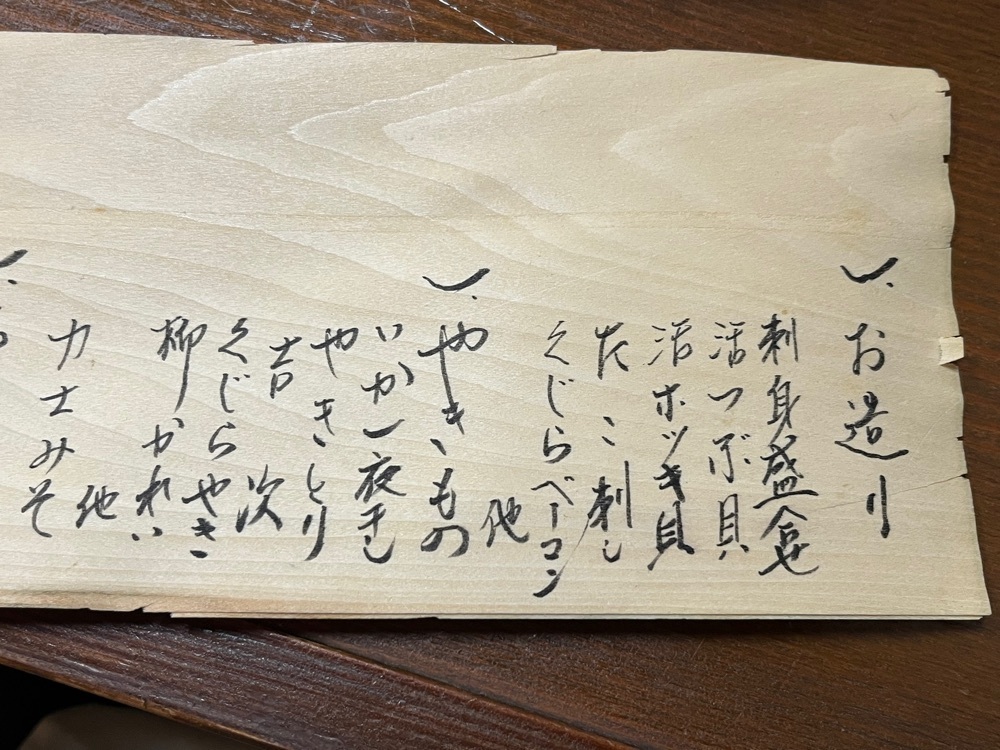 一、お造り
刺身盛合せ
活つぶ貝
活ホッキ貝
たこ刺し
くじらベーコン
他
一、やきもの
いか一夜干し
やきとり
吉次
くじらやき
柳かれい
他
力士みそ